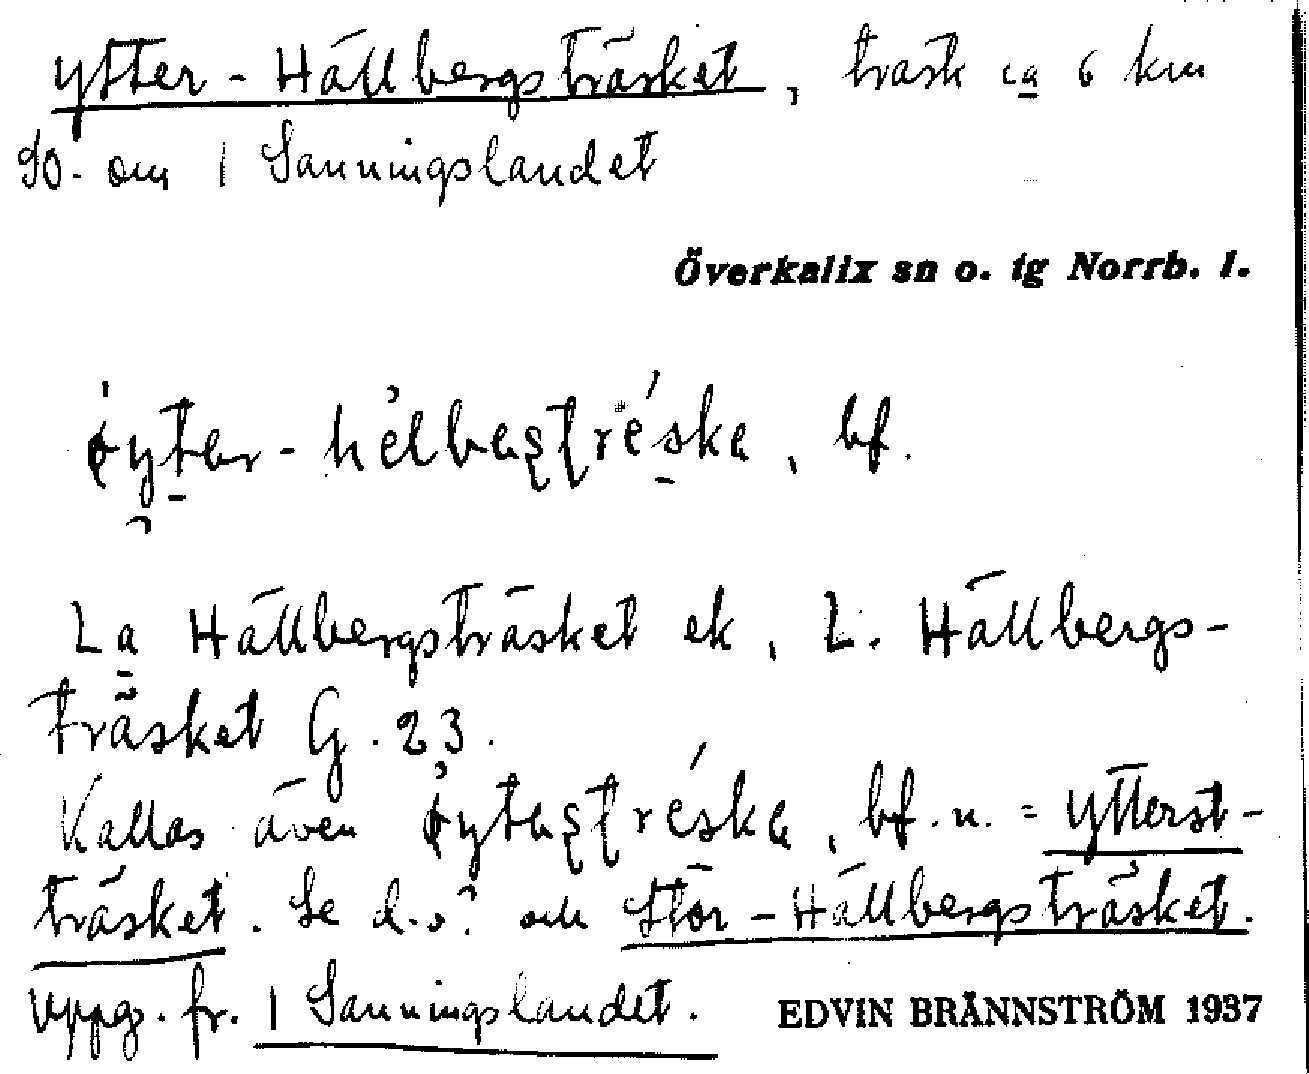 Ytter-Hällbergsträsket, träsk ca 6 km
SO. om 1 Sanningslandet
Överkalix sn o. tg Norrb. l.
bf.
La Hällbergsträsket ek, L. Hällbergs-
träsket G. 23.
Kallas även bf. u. = Ytterst-
träsket. Se d.o.? och Stor-Hällbergsträsket.
Uppg. fr. 1 Sanningslandet.
EDVIN BRÄNNSTRÖM 1937